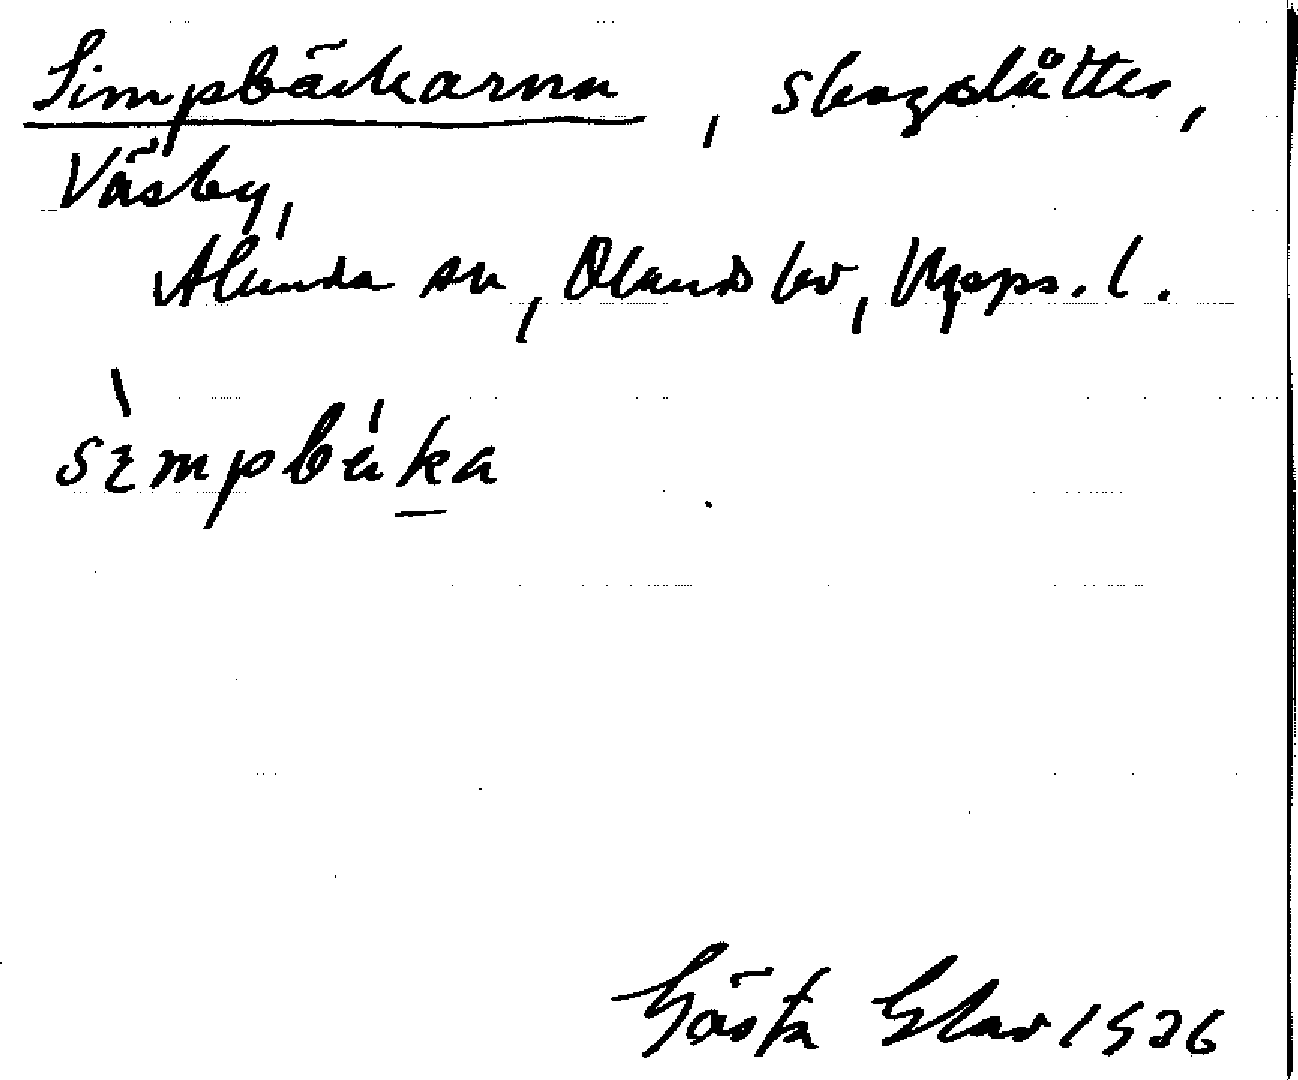 Simpbäckarna, skogslåtter,
Väsby,
Alunda sn, Olands hd, Upps. l.
sìmpbáka
Gösta Elav 1926